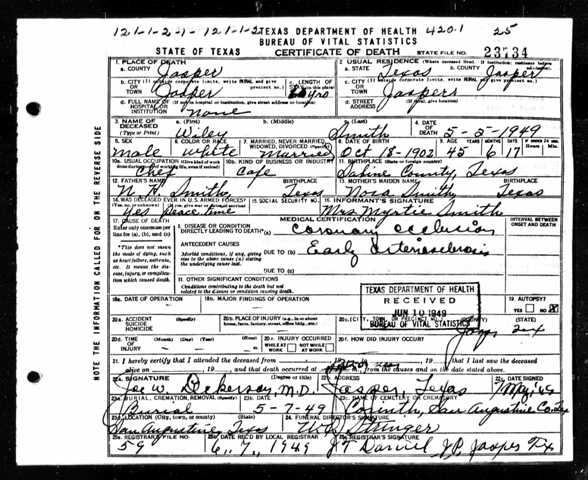 121-1-21-1 121-1-2 TEXAS DEPARTMENT OF HEALTH 420.1 25
BUREAU OF VITAL STATISTICS
STATE OF TEXAS CERTIFICATE OF DEATH STATE FILE NO. 23734
1. PLACE OF DEATH 2. USUAL RESIDENCE
a. COUNTY Jasper a. STATE Texas b. COUNTY Jasper
b. CITY OR TOWN Jasper c. LENGTH OF c. CITY OR TOWN Jasper
d. FULL NAME OF HOSPITAL OR INSTITUTION None d. STREET ADDRESS
3. NAME OF DECEASED (Type or Print) a. (First) Wiley b. (Middle) c. (Last) Smith 4. DATE OF DEATH 5-5-1949
5. SEX male 6. COLOR OR RACE white 7. MARRIED, NEVER MARRIED, WIDOWED, DIVORCED Married 8. DATE OF BIRTH Oct 18-1902 9. AGE 45 6 17
10a. USUAL OCCUPATION Chef 10b. KIND OF BUSINESS OR INDUSTRY Cafe 11. BIRTHPLACE Sabine County, Texas
12. FATHER'S NAME Smith BIRTHPLACE Texas 13. MOTHER'S MAIDEN NAME Nora Smith BIRTHPLACE Texas
14. WAS DECEASED EVER IN U.S. ARMED FORCES? Yes Peace time 15. SOCIAL SECURITY NO. 16. INFORMANT'S SIGNATURE Mrs Myrtie Smith
17. CAUSE OF DEATH MEDICAL CERTIFICATION INTERVAL BETWEEN ONSET AND DEATH
Enter only one cause per line for (a), (b), and (c) I. DISEASE OR CONDITION DIRECTLY LEADING TO DEATH (a) Coronary occlusion
*This does not mean the mode of dying, such as heart failure, asthenia, etc. It means the disease, injury, or complication which caused death.
ANTECEDENT CAUSES
Morbid conditions, if any, giving rise to the above cause (a) stating the underlying cause last. DUE TO (b) Early arteriosclerosis
DUE TO (c)
II. OTHER SIGNIFICANT CONDITIONS
Conditions contributing to the death but not related to the disease or condition causing death.
TEXAS DEPARTMENT OF HEALTH
RECEIVED
JUN 10 1949
BUREAU OF VITAL STATISTICS
18a. DATE OF OPERATION 18b. MAJOR FINDINGS OF OPERATION 19. AUTOPSY? YES NO
20a. ACCIDENT SUICIDE HOMICIDE (Specify) 20b. PLACE OF INJURY (COUNTY) (STATE)
20d. TIME OF INJURY 20e. INJURY OCCURRED WHILE AT WORK NOT WHILE AT WORK 20f. HOW DID INJURY OCCUR?
21. I hereby certify that I attended the deceased from 19 , that I last saw the deceased
alive on , 19 , and that death occurred at from the causes and on the date stated above.
22a. SIGNATURE Joe W. Dickerson, M.D. (Degree or title) 22b. ADDRESS Jasper, Texas 22c. DATE SIGNED
23a. BURIAL, CREMATION, REMOVAL (Specify) Burial 23b. DATE 5-7-49 23c. NAME OF CEMETERY OR CREMATORY Corinth, San Augustine Co. Tex
23d. LOCATION (City, town, or county) (State) San Augustine, Texas 24. FUNERAL DIRECTOR'S SIGNATURE Stringer
25a. REGISTRAR'S FILE NO. 59 25b. DATE REC'D BY LOCAL REGISTRAR 6, 7, 1949 25c. REGISTRAR'S SIGNATURE JT Daniel J.P. Jasper Tx
NOTE THE INFORMATION CALLED FOR ON THE REVERSE SIDE